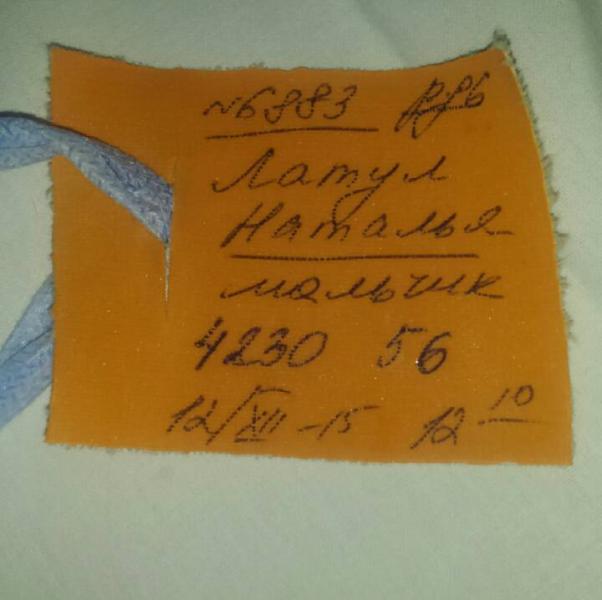 №6883
Латул
Наталья
мальчик
4230 56
12/XII-15 12 10